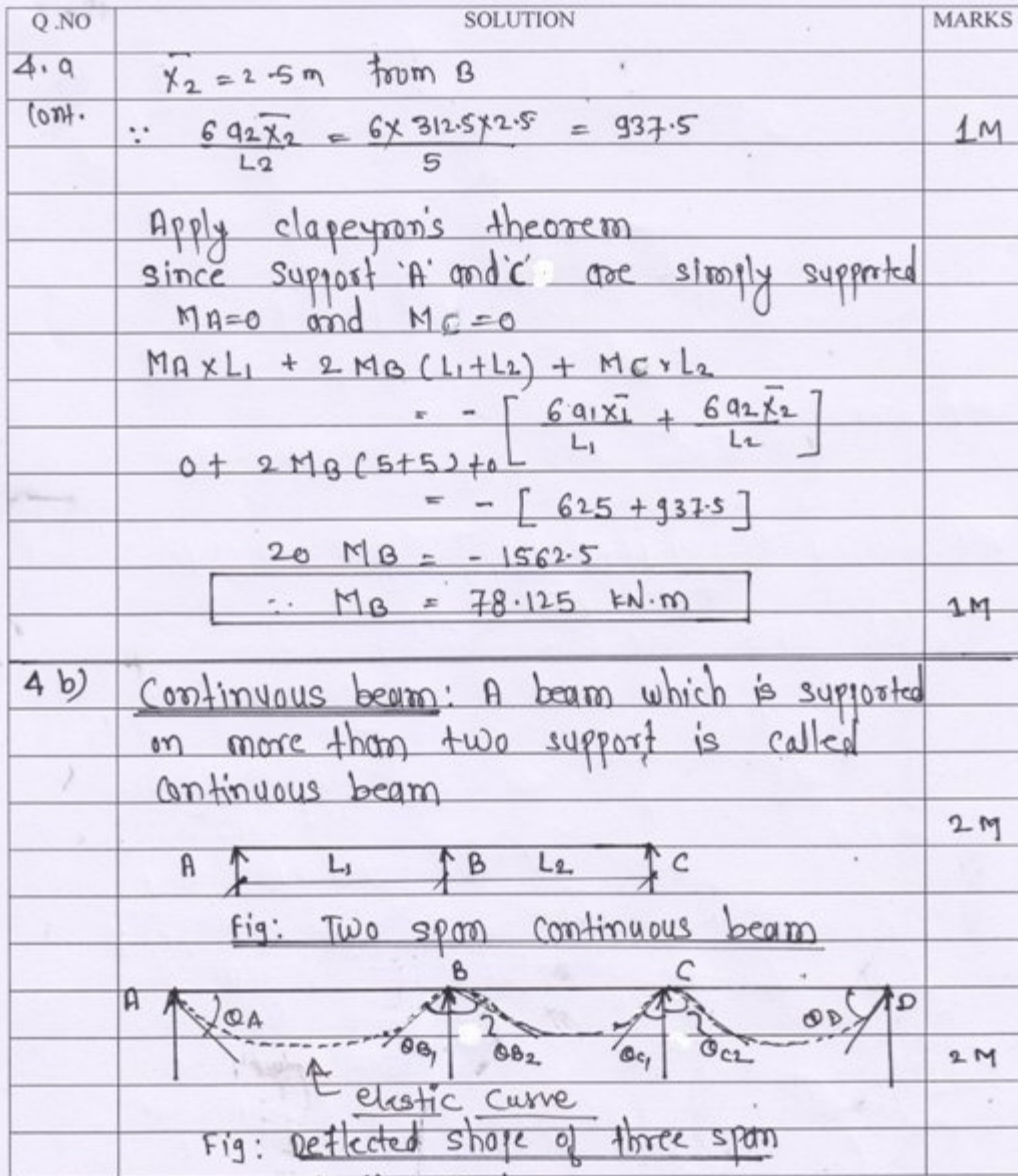 Q.NO SOLUTION MARKS
4.a x̄2 = 2.5m from B
Cont. ∵ 6a2x̄2/L2 = 6x 312.5x2.5/5 = 937.5 1M
Apply clapeyron's theorem
since support 'A' and 'C' are simply supported
MA=0 and MC=0
MA x L1 + 2 MB (L1+L2) + MC x L2
= - [ 6a1x̄1/L1 + 6a2x̄2/L2 ]
0+ 2 MB (5+5)+0
= - [ 625 + 937.5 ]
20 MB = - 1562.5
∴ MB = 78.125 kN.m 1M
4 b) Continuous beam: A beam which is supported
on more than two support is called
continuous beam
2 M
A L1 B L2 C
Fig: Two span continuous beam
A B C D
θA θB1 θB2 θC1 θC2 θD 2 M
elastic curve
Fig: Deflected shape of three span